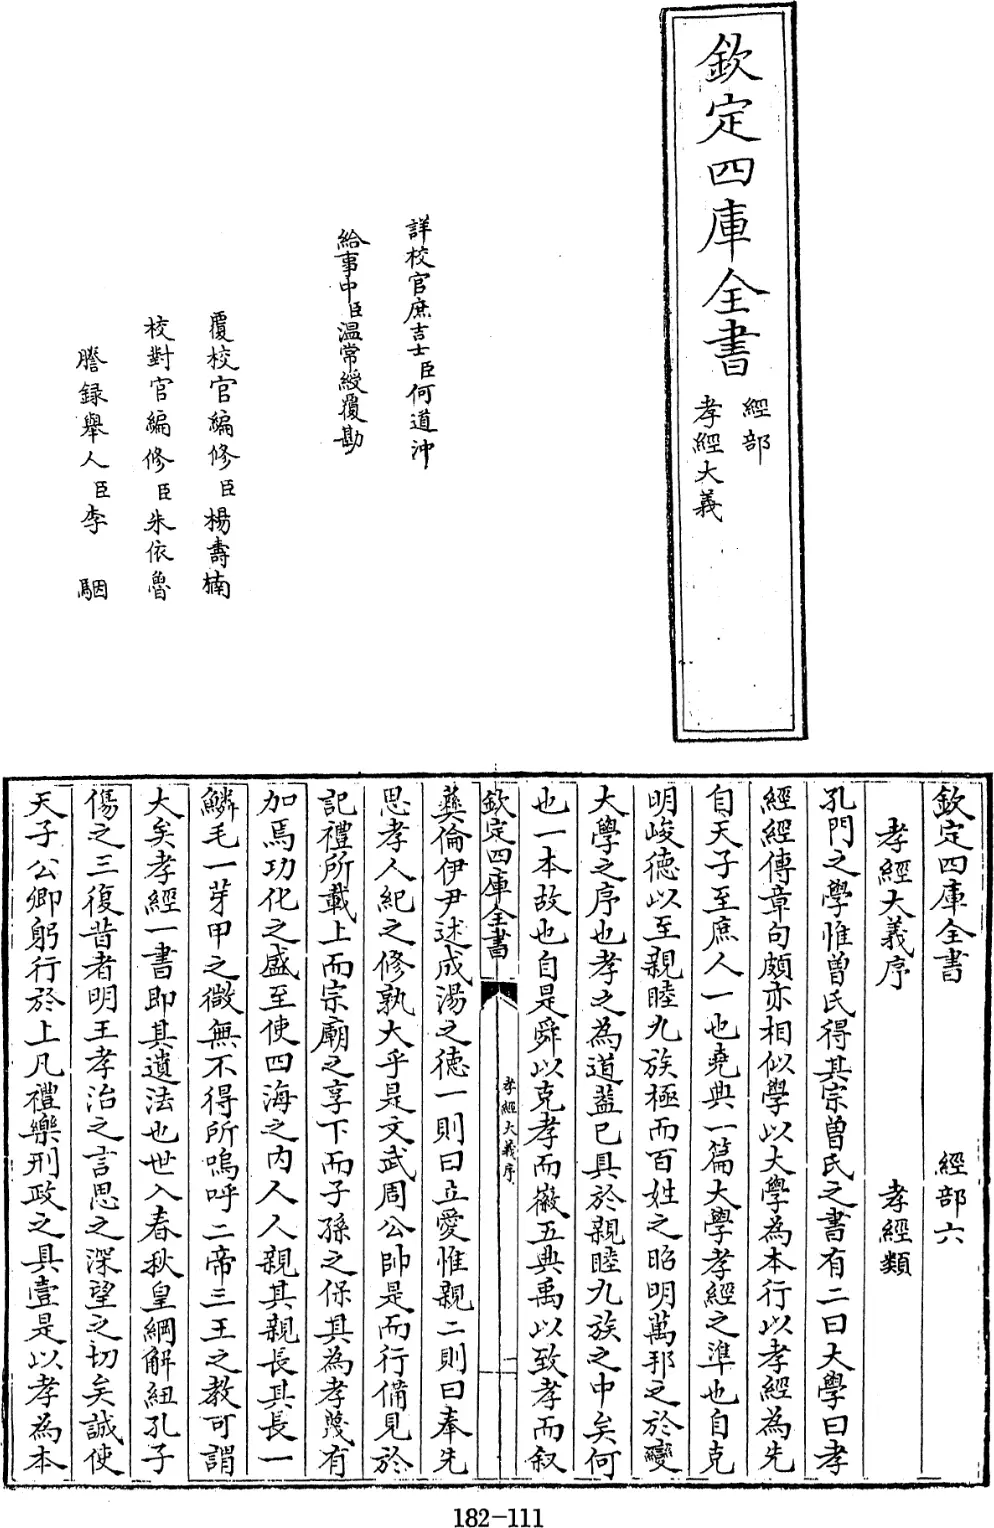 欽定四庫全書
經部
孝經大義
詳校官庶吉士臣何道沖
給事中臣溫常綬覆勘
覆校官編修臣楊壽楠
校對官編修臣朱依魯
謄錄舉人臣李駰
欽定四庫全書 經部六
孝經大義序 孝經類
孔門之學惟曾氏得其宗曾氏之書有二曰大學曰孝
經經傳章句頗亦相似學以大學為本行以孝經為先
自天子至庶人一也堯典一篇大學孝經之準也自克
明峻德以至親睦九族極而百姓之昭明萬邦之於變
大學之序也孝之為道蓋已具於親睦九族之中矣何
也一本故也自是舜以克孝而徽五典禹以致孝而敘
欽定四庫全書
孝經大義序
一
彛倫伊尹述成湯之德一則曰立愛惟親二則曰奉先
思孝人紀之修孰大乎是文武周公帥是而行備見於
記禮所載上而宗廟之享下而子孫之保其為孝蔑有
加焉功化之盛至使四海之内人人親其親長其長一
鱗毛一芽甲之微無不得所嗚呼二帝三王之教可謂
大矣孝經一書即其遺法也世入春秋皇綱解紐孔子
傷之三復昔者明王孝治之言思之深望之切矣誠使
天子公卿躬行於上凡禮樂刑政之具壹是以孝為本
182-111